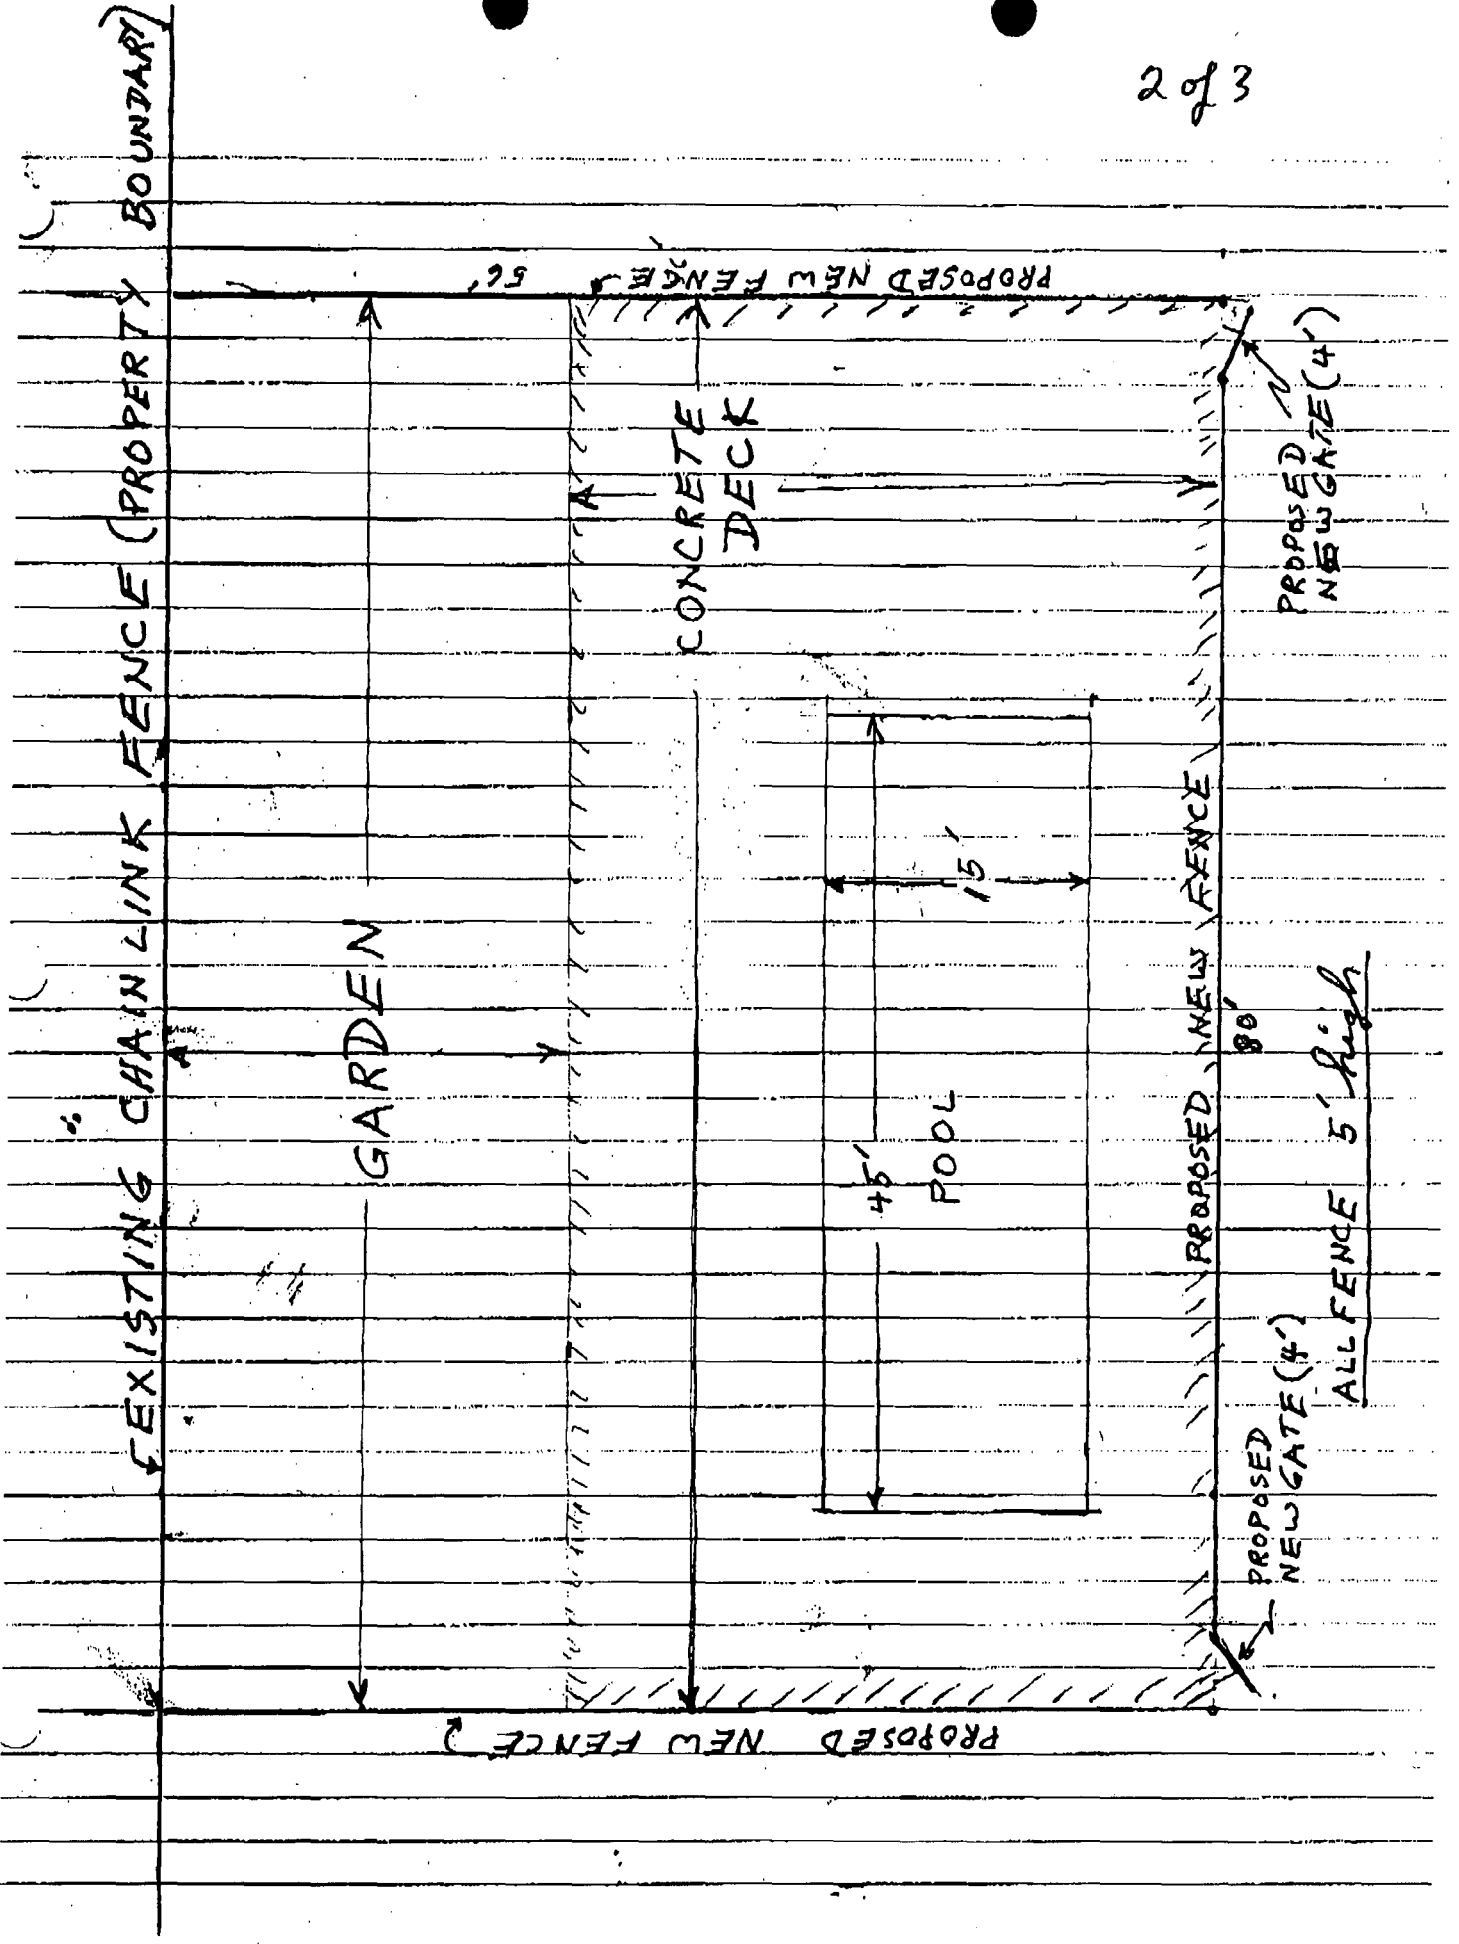 2 of 3
EXISTING CHAIN LINK FENCE (PROPERTY BOUNDARY)
PROPOSED NEW FENCE 56'
GARDEN
CONCRETE
DECK
45'
15'
POOL
PROPOSED NEW FENCE
80'
PROPOSED
NEW GATE (4')
PROPOSED
NEW GATE (4')
ALL FENCE 5' high
PROPOSED NEW FENCE